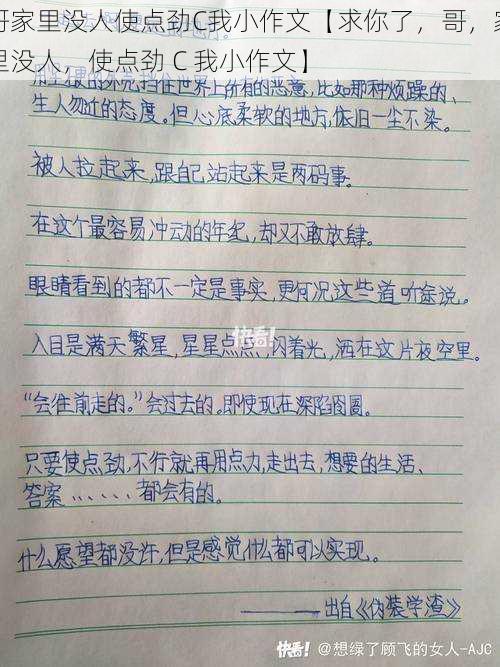 哥家里没人使点劲C我小作文【求你了，哥，家
里没人，使点劲 C 我小作文】
用生硬的外壳挡住世界上所有的恶意,比如那种烦躁的、
生人勿近的态度。但心底柔软的地方,依旧一尘不染。
被人拉起来,跟自己站起来是两码事。
在这个最容易冲动的年纪,却又不敢放肆。
眼睛看到的都不一定是事实,更何况这些道听途说。
入目是满天繁星,星星点点,闪着光,洒在这片夜空里。
快看!
“会往前走的。”会过去的。即使现在深陷囹圄。
只要使点劲,不行就再用点力,走出去,想要的生活、
答案......都会有的。
什么愿望都没许,但是感觉什么都可以实现。
——出自《伪装学渣》
快看! @想绿了顾飞的女人-AJC